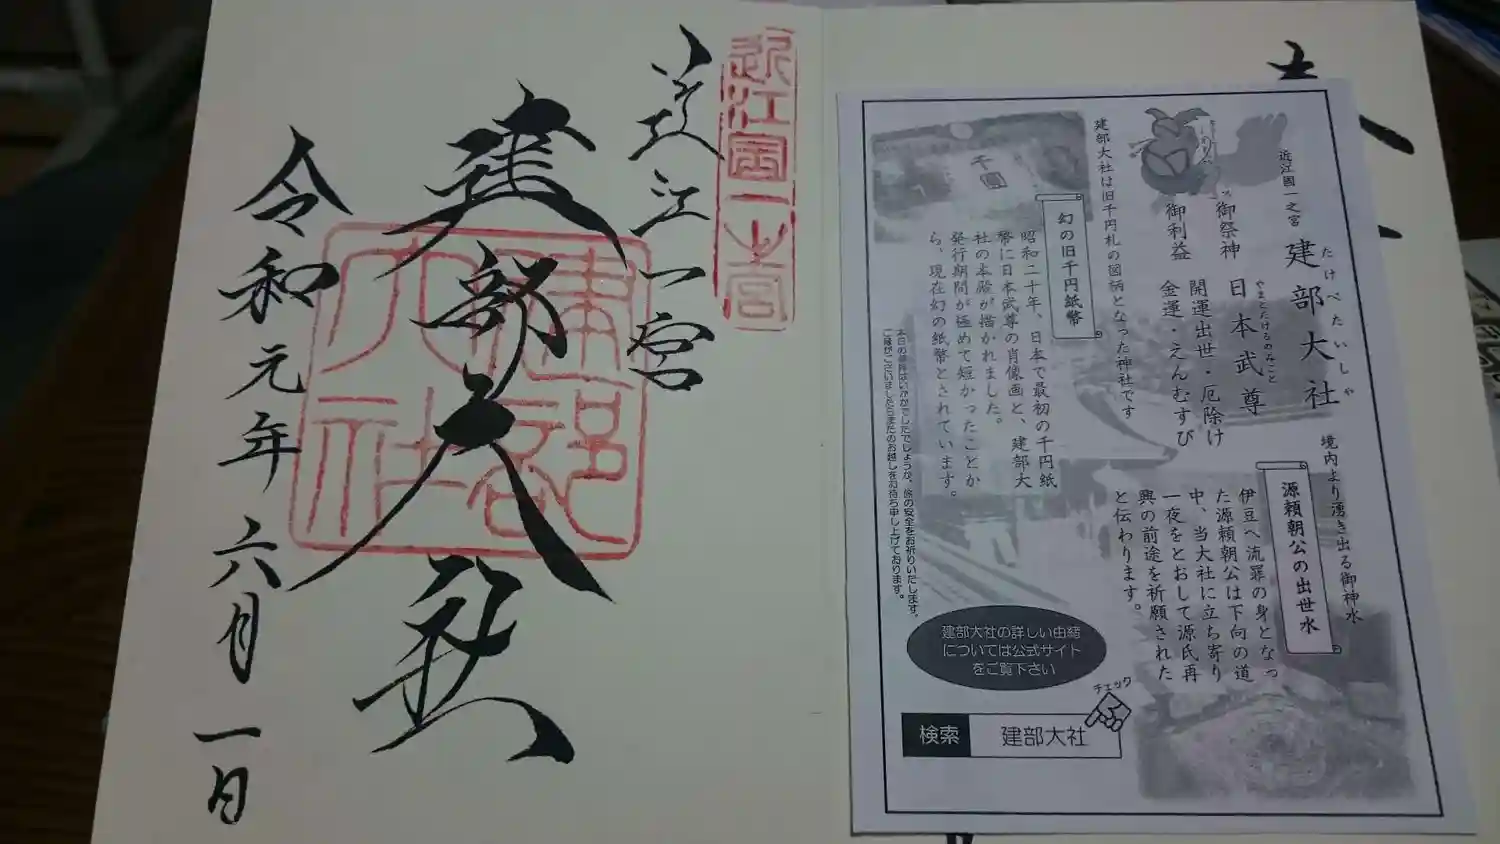 近江國一之宮
建部大社
たけべたいしゃ
御祭神
日本武尊
やまとたけるのみこと
御利益
開運出世・厄除け
金運・えんむすび
建部大社は旧千円札の図柄となった神社です
千圓
幻の旧千円紙幣
昭和二十年、日本で最初の千円紙
幣に日本武尊の肖像画と、建部大
社の本殿が描かれました。
発行期間が極めて短かったことか
ら、現在幻の紙幣とされています。
境内より湧き出る御神水
源頼朝公の出世水
伊豆へ流罪の身となっ
た源頼朝公は下向の道
中、当大社に立ち寄り
一夜をとおして源氏再
興の前途を祈願された
と伝わります。
本日の参拝はいかがでしたでしょうか。旅の安全をお祈りいたします。
ご縁がございましたらまたのお越しをお待ち申し上げております。
建部大社の詳しい由緒
については公式サイト
をご覧下さい
チェック
検索
建部大社
近江國一之宮
近江一宮
建部大社
建部大社
令和元年六月一日